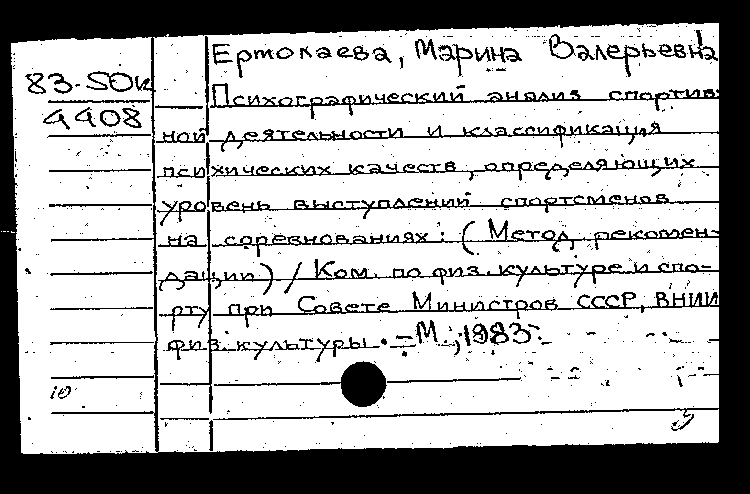 Ертолаева, Марина Валерьевна
83-SOк
4408
Психографический анализ спортив-
ной деятельности и классификация
психических качеств, определяющих
уровень выступлений спортсменов
на соревнованиях: (Метод. рекомен-
дации) / Ком. по физ. культуре и спо-
рту при Совете Министров СССР, ВНИИ
физ. культуры. - М., 1983.
10